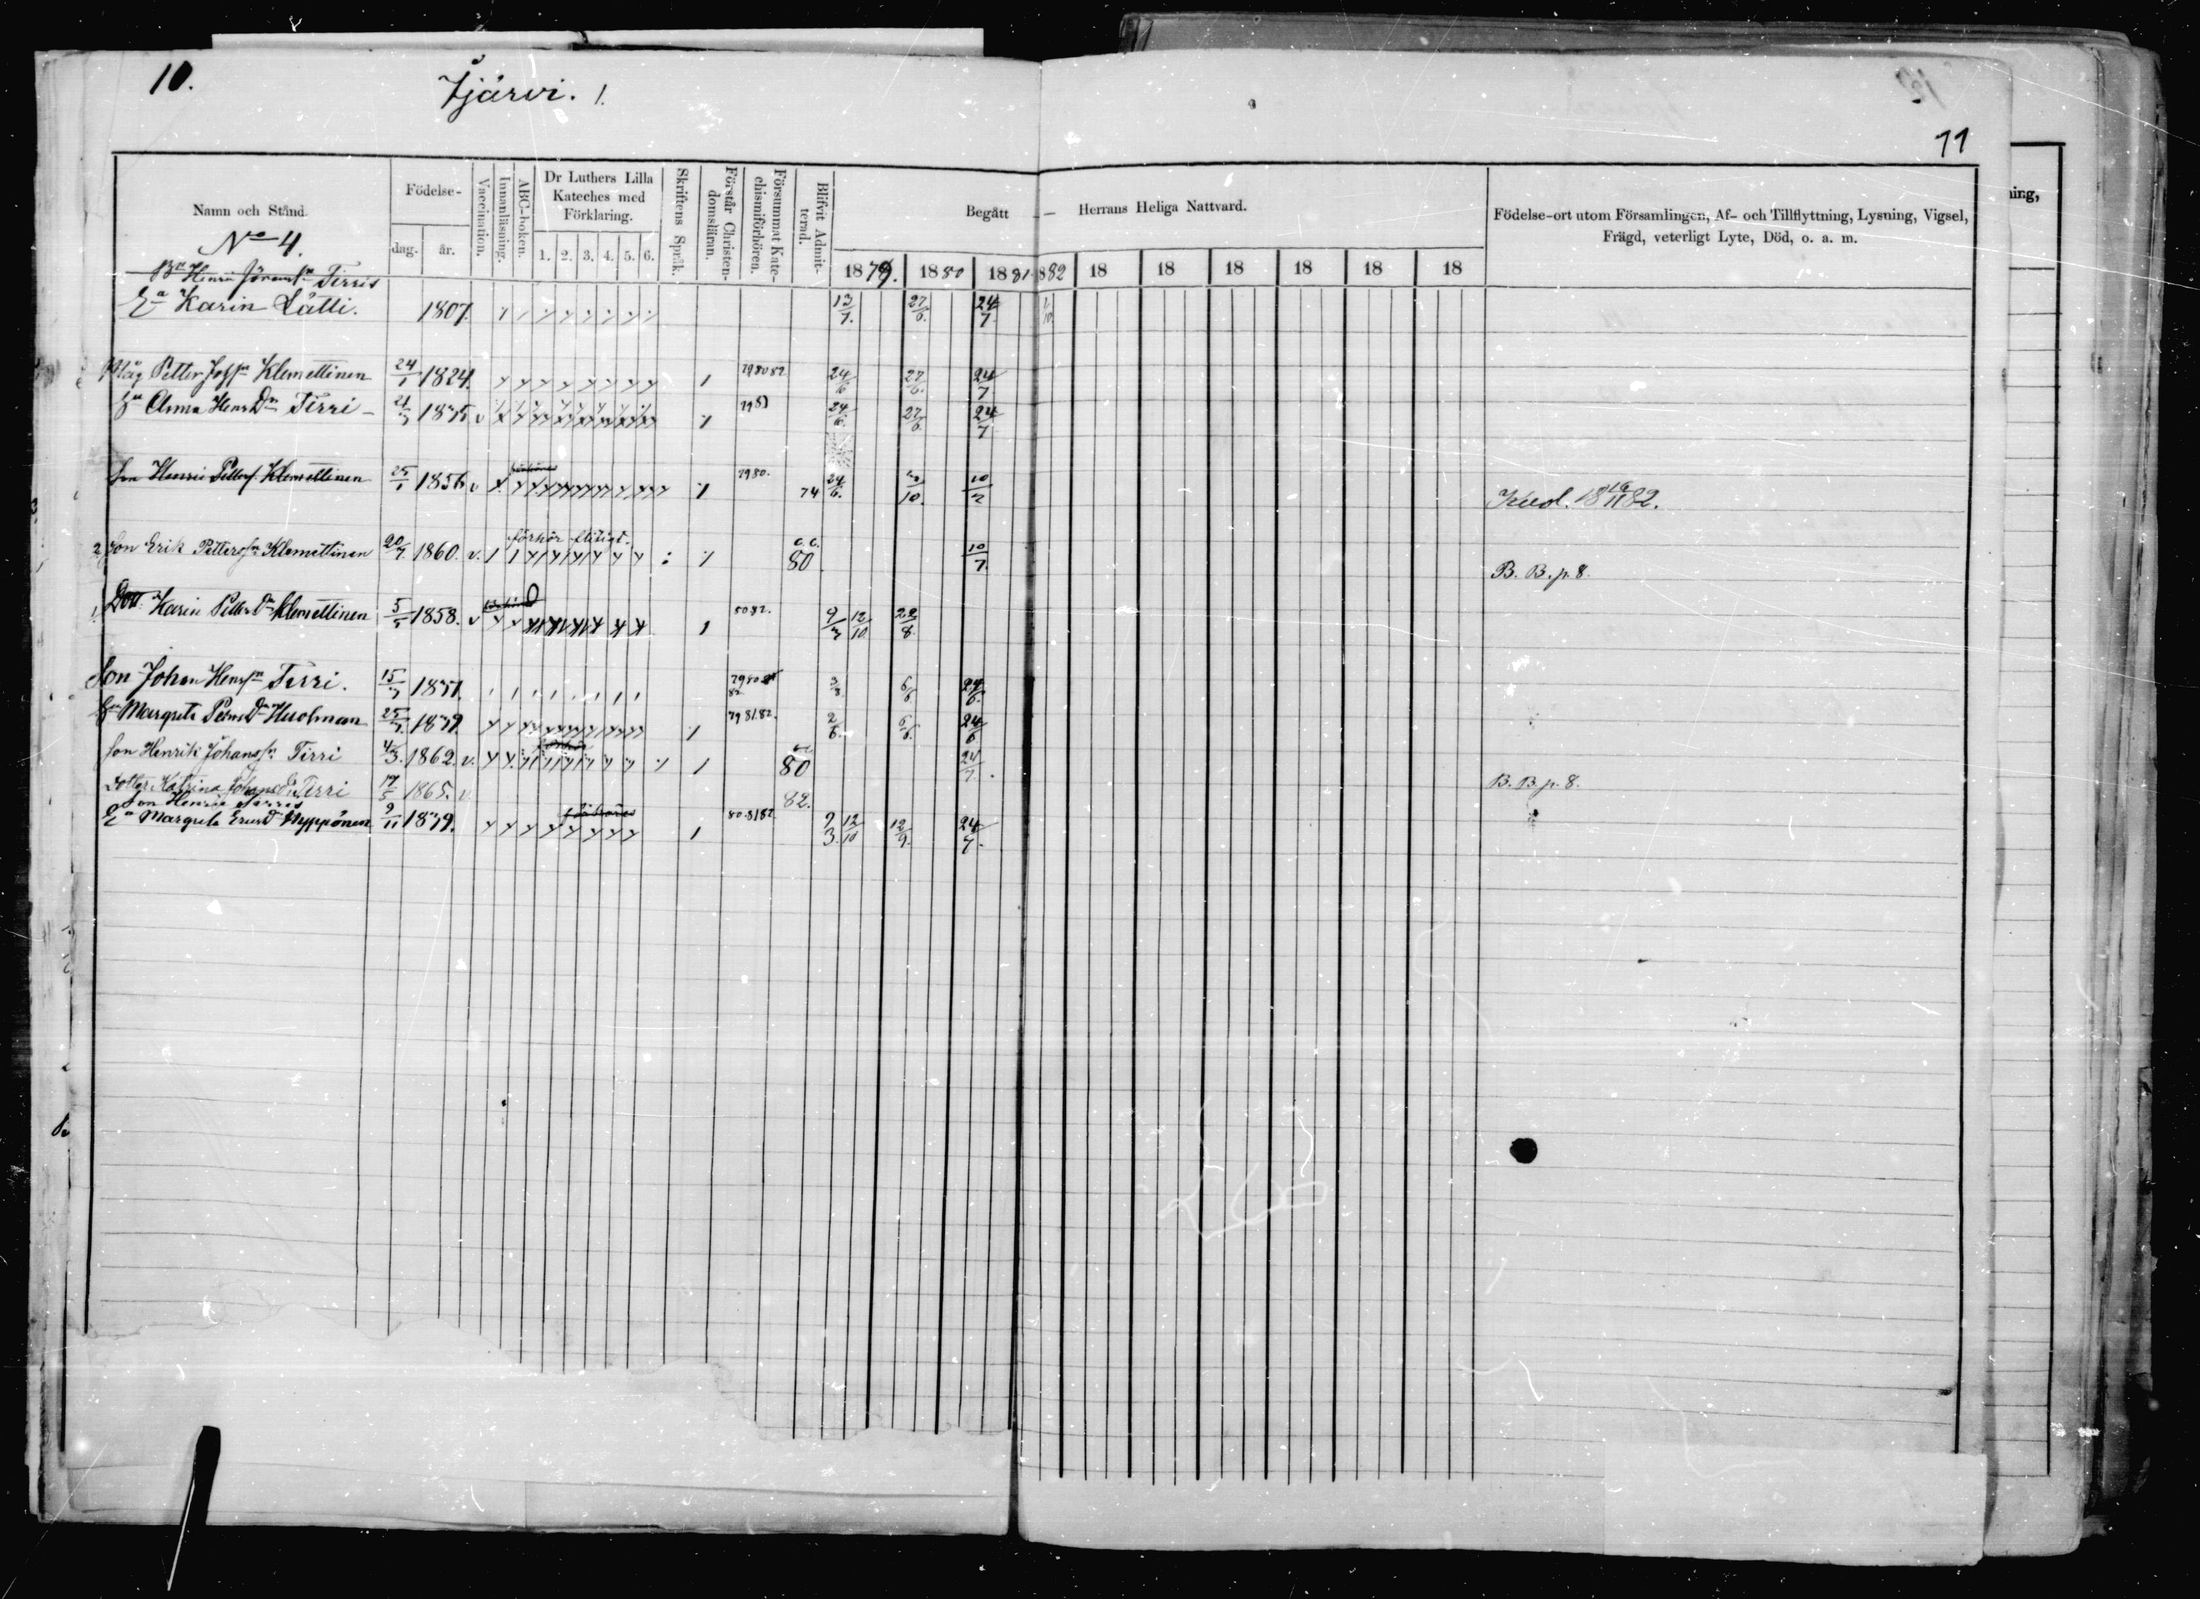 10.
Yjärvi. 1.
11
Namn och Stånd.
Födelse-
dag. år.
Vaccination.
Innanläsning.
ABC-boken.
Dr Luthers Lilla Kateches med Förklaring.
1. 2. 3. 4. 5. 6.
Skriftens Språk.
Förstår Christen-domsläran.
Försummat Kate-chismiförhören.
Blifvit Admit-terad.
Begått — Herrans Heliga Nattvard.
1879. 1880 1881 1882 18 18 18 18 18 18
Födelse-ort utom Församlingen, Af- och Tillflyttning, Lysning, Vigsel, Frägd, veterligt Lyte, Död, o. a. m.
No 4.
Bn Henric Göransn Tirris
Ea Karin Lätti. 1807. 13/7. 27/6. 24/7. 1/10.
Måg Petter Johsn Klemettinen 24/1 1824. 79 80 82 24/6 27/6. 24/7
Hu Anna HenrDr Tirri 1835 v 79 81 24/6. 27/6. 24/7
Son Henric Petters. Klemettinen 25/1 1856 v 79 80. 74 24/6. /10. 10/7 Kuol. 18 16/11 82.
förhör flitigt.
2 Son Erik Pettersn Klemettinen 20/7. 1860. v. c. c. 80 10/7. B. B. p. 8.
1. Dott. Karin Petter Dr Klemettinen 5/5 1858. v 80 82. 9/3 12/10 22/8.
Son Johan Hensn Tirri. 15/7 1831. 79 80 81 82 3/8. 6/6 24/6.
Hu Margreta Dr Huolman 25/7. 1839. 79 81 82. 2/6. 6/6. 24/6
Son Henrik Johanssn Tirri 4/3. 1862. v. 80 24/7. B. B. p. 8.
Dotter Katrina Johans Dr Tirri 17/5 1865. v 82.
Son Henric Tirris
Ea Margreta Ericsd Hyppönen 9/11 1839. 80. 81 82 9/3. 12/10 12/9. 24/7.